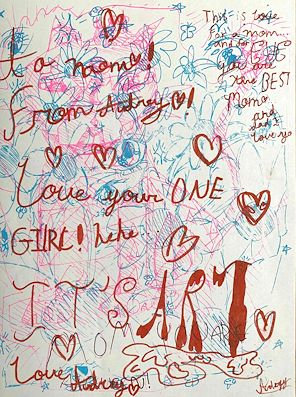 To a mom!
From Audrey!
Love your ONE
GIRL! hehe
IT'S ART
Love, Audrey!
This is love
For a mom...
and for
you are
the BEST
Moma
and
dad
love you
Audrey